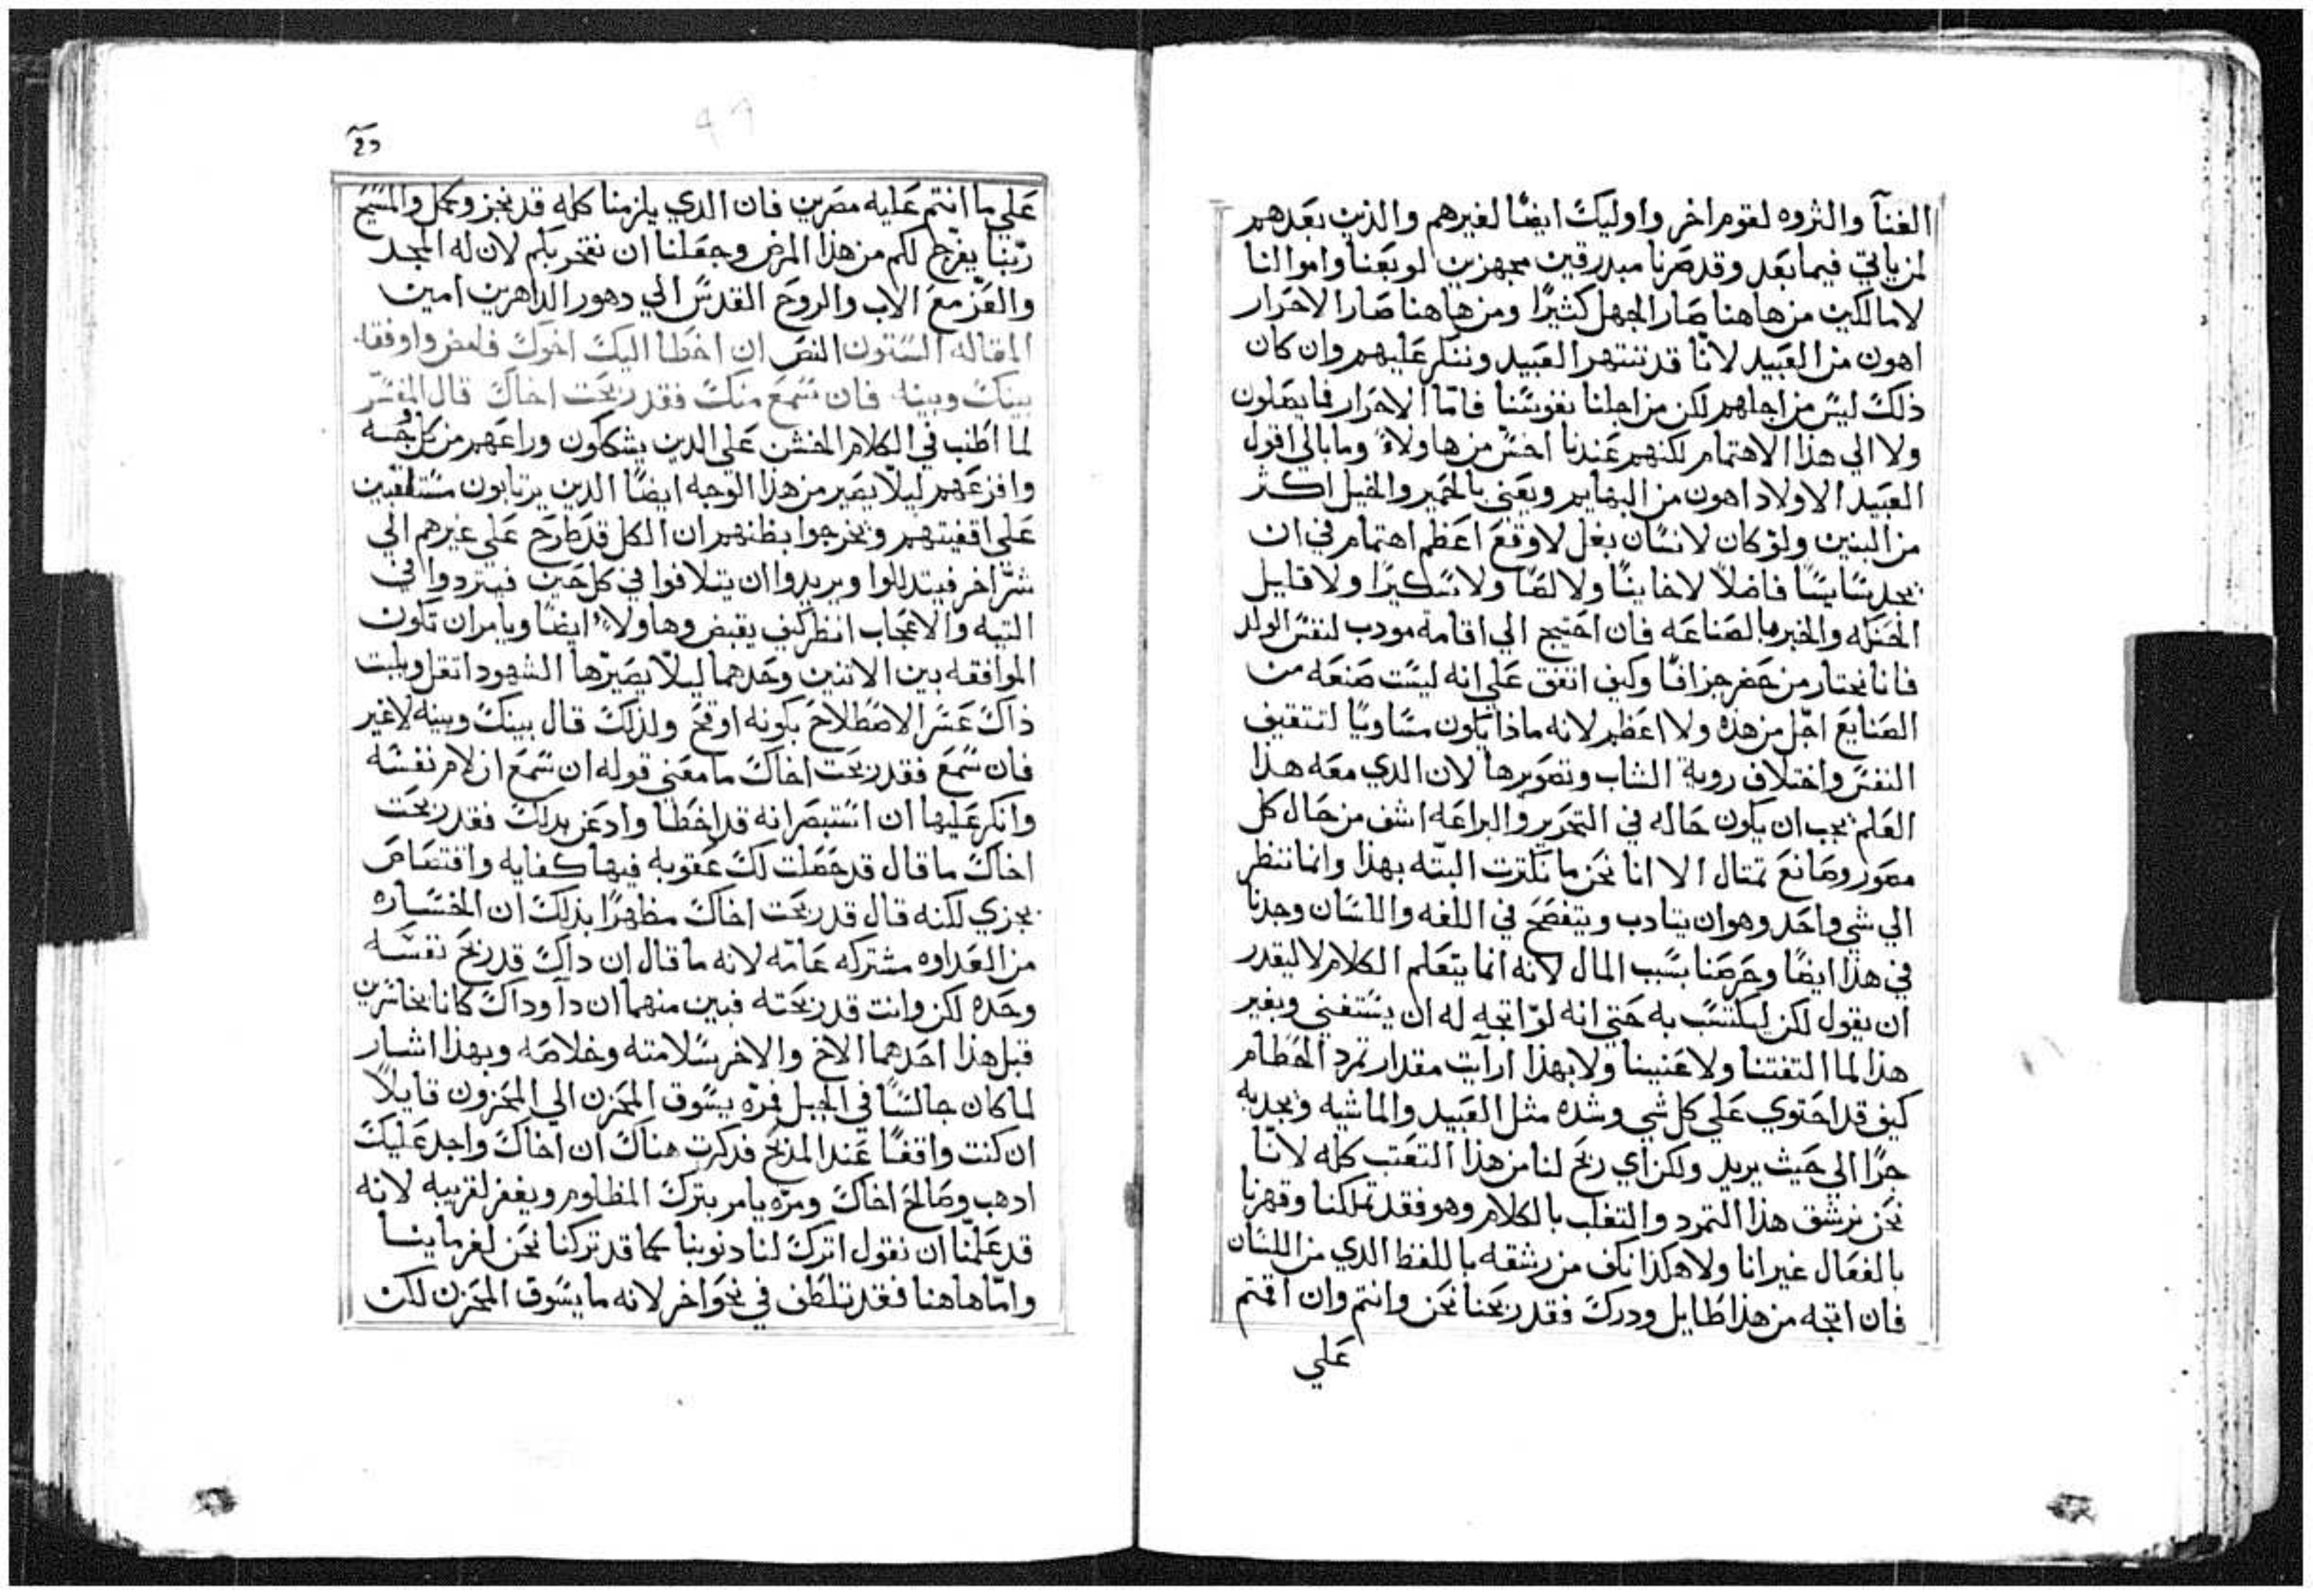 الغنآ والثروه لقوم اخر واوليك ايضًا لغيرهم والذين بعدهم
لمن ياتي فيما بعد وقد صرنا مبدرقين مجهزين لو بعنا واموالنا
لا مالكين من هاهنا صار الجهل كثيرًا ومن هاهنا صار الاحرار
اهون من العبيد لانّا قد ننتهر العبيد وننكر عليهم وان كان
ذلك ليس من اجلهم لكن من اجلنا نفوسنا فامّا الاحرار فما يصلون
ولا الي هذا الاهتمام لكنهم عندنا اخس من هاولاء وما بالي اقول
العبيد الاولاد اهون من البهايم ونعني بالحمير والخيل اكثر
من البنين ولو كان لانسان بغل لاوقع اعظم اهتمام في ان
يجد سايسًا فاضلًا لا خاينًا ولا لصًا ولا سكيرًا ولا قليل
الحنكه والخبره بالصناعه فان احتيج الي اقامة مودب لنفس الولد
فانا نختار من حضر جزافًا وكيف اتفق علي انه ليست صنعه من
الصنايع اجّل من هذه ولا اعظم لانه ماذا يكون مساويًا لتثقيف
النفس واختلاف روية الشاب وتصويرها لان الدي معه هذا
العلم يجب ان يكون حاله في التحرير والبراعه اشف من حال كل
مصور وصانع تمتال الا انا نحن ما نكترت البتّه بهذا وانما ننتظر
الي شي واحد وهو ان يتادب ويتفصح في اللغه واللسان وجدنا
في هذا ايضًا وحرصنا بسبب المال لانه انما يتعلم الكلام لا ليقدر
ان يقول لكن ليكتسب به حتي انه لوّ اتجه له ان يستغني وبغير
هذا لما التفتنا ولا عنينا ولا بهذا ارآيت مقدار تمرد الحطام
كيف قد احتوي علي كل شي وشده مثل العبيد والماشيه ويجدبه
جرًا الي حيث يريد ولكن اي ربح لنا من هذا التعتب كله لانّا
نحن نرشق هذا التمرد والتغلب بالكلام وهو فقد تملكنا وقهرنا
بالفعال غير انا ولا هكذا نكف من رشقه باللفظ الدي من اللسان
فان اتجه من هذا طايل ودرك فقد ربحنا نحن وانتم وان اقمتم
علي
علي ما انتم عليه مصرين فان الدي يلزمنا كله قد نجز وكمل والمسيح
ربّنا يفرج لكم من هذا المرض وجعلنا ان نفتخر بكم لان له المجد
والعزّ مع الاب والروح القدس الي دهور الداهرين امين
المقاله الستون النص ان اخطا اليك اخوك فامض واوفقه
بينك وبينه فان سمع منك فقد ربحت اخاك قال المفسّر
لما اطنب في الكلام الخشن علي الدين يشككون وراعهم من كل جهه
وافزعهم ليلّا يصير من هذا الوجه ايضًا الدين يرتابون مستلقين
علي اقفيتهم ويخرجوا بظنهم ان الكل قد طرح علي غيرهم الي
شرّ اخر فيتدللوا ويريدوا ان يتلافوا في كل حين فيتردوا في
التيه والاعجاب انظر كيف يقبض وهاولاء ايضًا ويامر ان تكون
الموافقه بين الاتنين وحدهما ليلّا يصيّرها الشهود اتقل ويلبت
ذاك عسر الاصطلاح بكونه اوقح ولذلك قال بينك وبينه لا غير
فان سمع فقد ربحت اخاك ما معني قوله ان سمع ان لام نفسه
وانكر عليها ان استبصر انه قد اخطا وادعن بدلك فقد ربحت
اخاك ما قال قد حصلت لك عقوبه فيها كفايه واقتصاص
يجزي لكنه قال قد ربحت اخاك مظهرًا بذلك ان الخساره
من العداوه مشتركه عامّه لانه ما قال ان داك قد ربح نفسه
وحده لكن وانت قد ربحته فبين منهما ان دآ وداك كانا خاسرين
قبل هذا احدهما الاخ والاخر سلامته وخلاصه وبهذا اشار
لما كان جالسًا في الجبل فمرّه يسوق المحزن الي المحزون قايلًا
ان كنت واقفًا عند المذبح فدكرت هناك ان اخاك واجد عليك
ادهب وصالح اخاك ومرّه يامر بترك المظلوم ويغفر لقريبه لانه
قد علّمنا ان نقول اترك لنا دنوبنا كما قد تركنا نحن لغرماينا
وامّا هاهنا فقد تلطف في نحو اخر لانه ما يسوق المحزن لكن